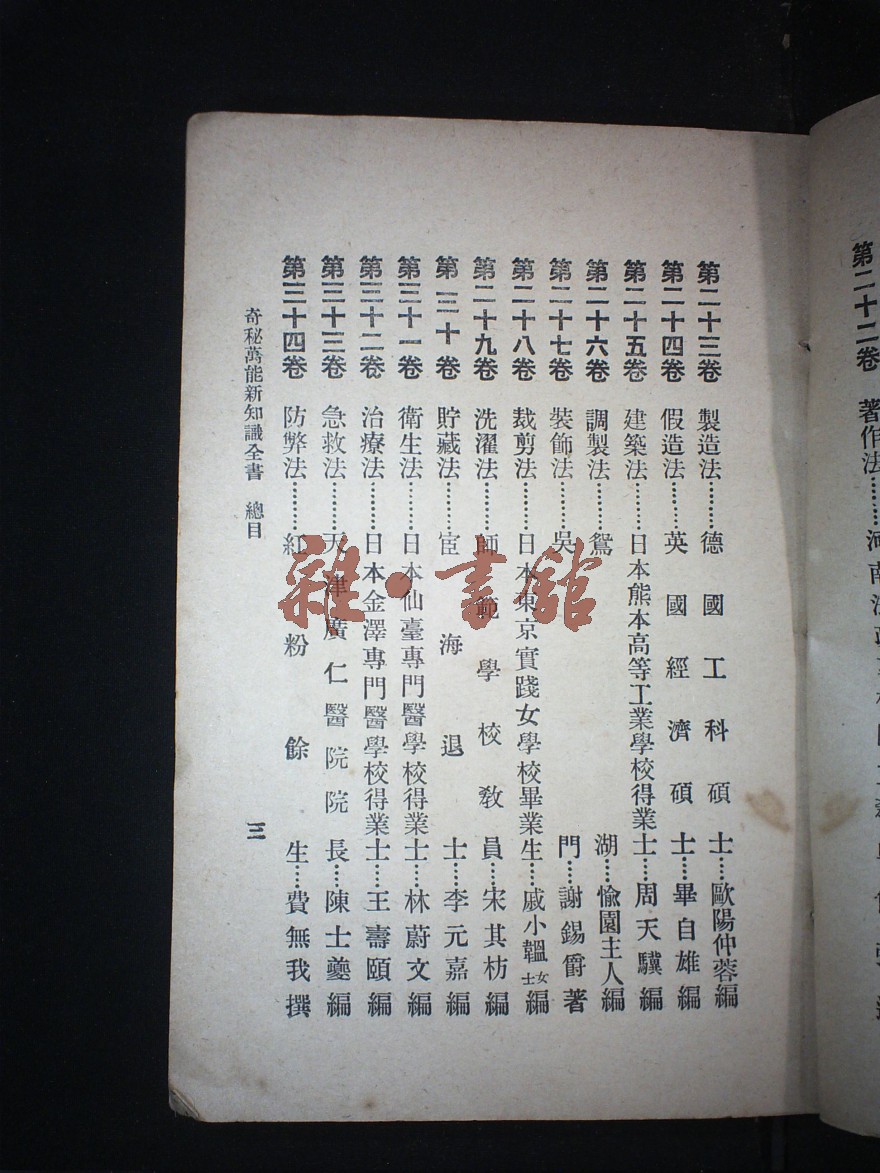 第二十二卷　著作法……河南
第二十三卷　製造法……德國工科碩士……歐陽仲蓉編
第二十四卷　假造法……英國經濟碩士……畢自雄編
第二十五卷　建築法……日本熊本高等工業學校得業士……周天驥編
第二十六卷　調製法……鴛湖……愉園主人編
第二十七卷　裝飾法……吳門……謝錫爵著
第二十八卷　裁剪法……日本東京實踐女學校畢業生……戚小韞女士編
第二十九卷　洗濯法……師範學校教員……宋其枋編
第三十卷　貯藏法……宦海退士……李元嘉編
第三十一卷　衛生法……日本仙臺專門醫學校得業士……林蔚文編
第三十二卷　治療法……日本金澤專門醫學校得業士……王壽頤編
第三十三卷　急救法……天津廣仁醫院院長……陳士夔編
第三十四卷　防弊法……紅粉餘生……費無我撰
奇秘萬能新知識全書　總目　三
雜·書館